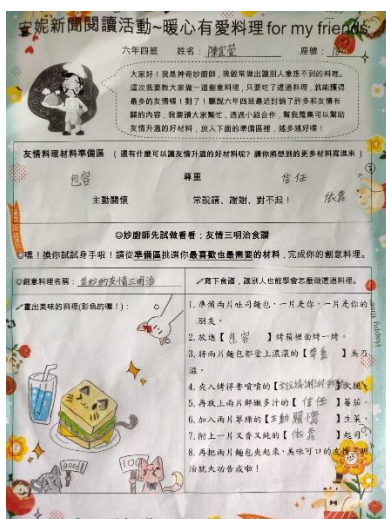 安妮新聞閱讀活動~暖心有愛料理 for my friends
六年四班 姓名： 座號：
大家好！我是神奇妙廚師，我經常做出讓別人意想不到的料理。
這次我要教大家做一道創意料理，只要吃了這道料理，就能獲得
最多的友情喔！對了！聽說六年四班最近討論了許多和友情有
關的內容，我要請大家幫忙，透過小組合作，幫我蒐集可以幫助
友情升溫的好材料，放入下面的準備區裡，越多越好喔！
友情料理材料準備區 （ 還有什麼可以讓友情升溫的好材料呢？請你將想到的更多材料寫進來 ）
包容 尊重 信任
主動關懷 常說請、謝謝、對不起！ 依靠
妙廚師先試做看看：友情三明治食譜
嘿！換你試試身手啦！請從準備區挑選你最喜歡也最需要的材料，完成你的創意料理。
創意料理名稱：美妙的友情三明治
寫下食譜，讓別人也能學會怎麼做這道料理。
畫出美味的料理(彩色的喔！)：
1. 準備兩片吐司麵包，一片是你，一片是你的
朋友。
2. 放進【 包容 】烤箱裡面烤一烤。
3. 將兩片麵包都塗上濃濃的【 尊重 】美乃
滋。
4. 夾入烤得香噴噴的【 】火腿。
5. 再放上兩片鮮嫩多汁的【 信任 】蕃茄。
6. 加入兩片翠綠的【 主動關懷 】生菜。
7. 附上一片又香又純的【 依靠 】起司。
8. 再把兩片麵包夾起來，美味可口的友情三明
治就大功告成啦！
good!
100